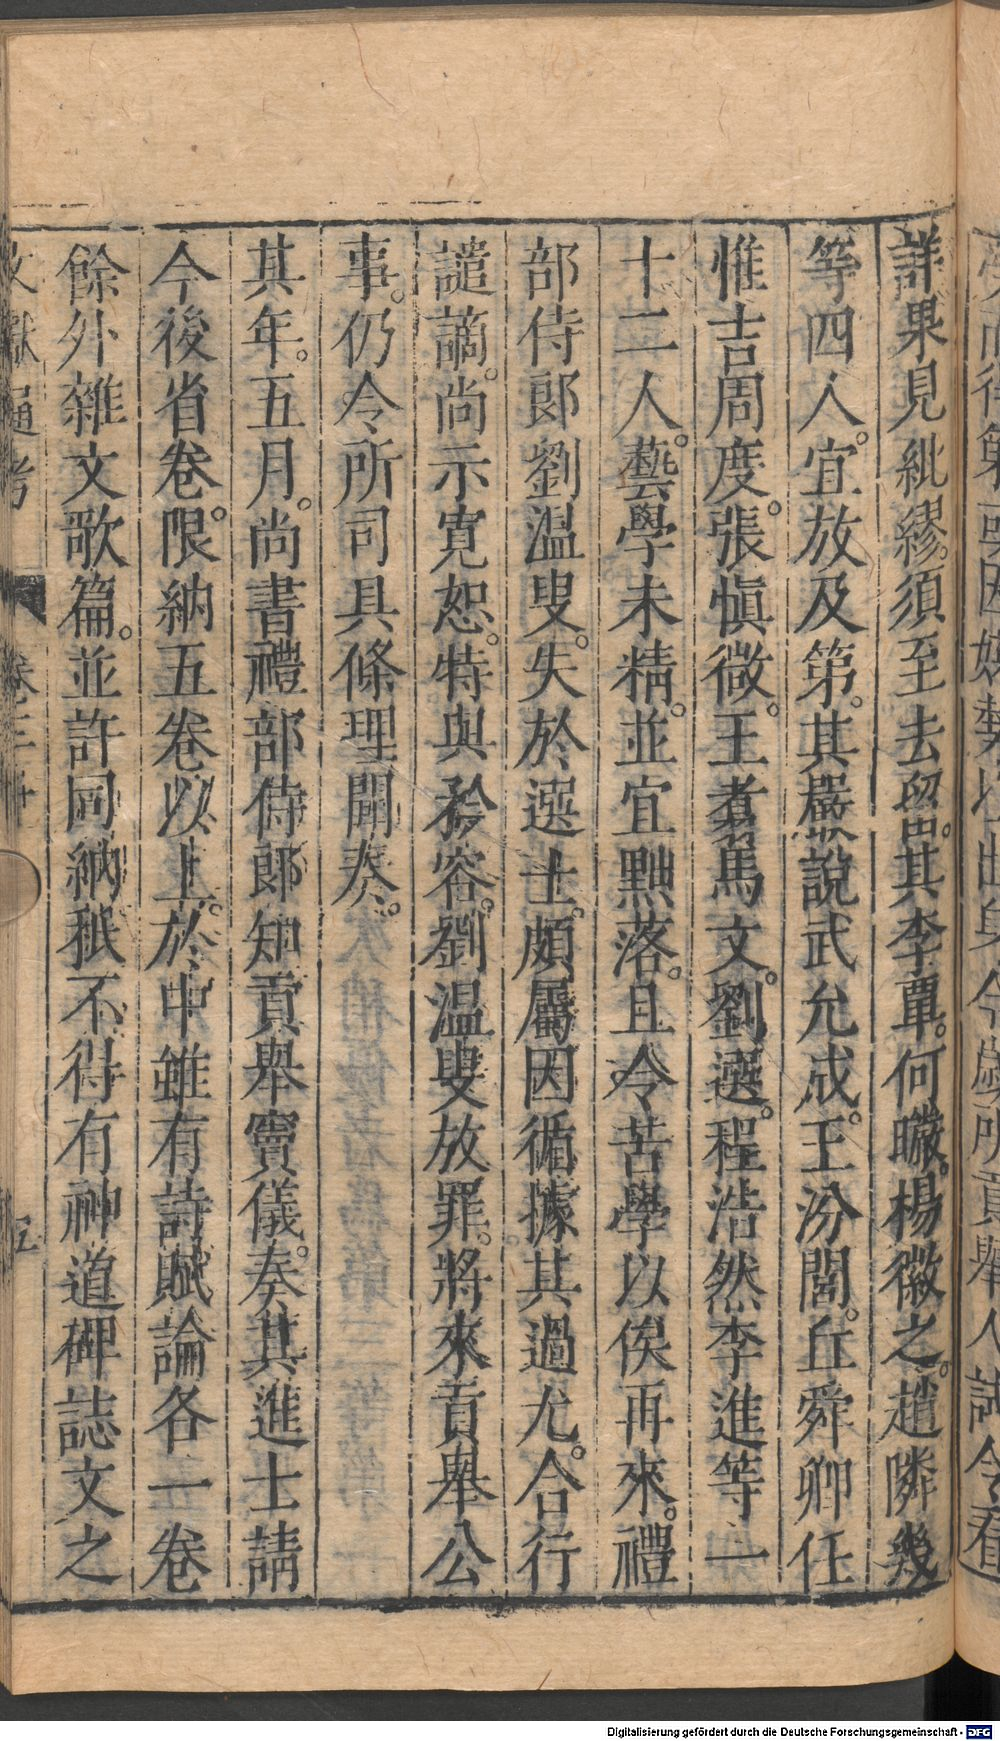 詳果見紕繆。須至去留。其李覃。何曮。楊徽之。趙隣幾
等四人。宜放及第。其嚴說武允成。王汾閭。丘舜卿任
惟吉周度。張愼微。王翥馬文。劉選。程浩然李進等一
十二人。藝學未精。並宜黜落。且令苦學以俟再來。禮
部侍郎劉温叟。失於選士。頗屬因循據其過尤。合行
譴謫。尚示寛恕。特與矜容。劉温叟放罪。將來貢舉公
事。仍令所司具條理聞奏。
其年。五月。尚書禮部侍郎知貢舉竇儀。奏其進士請
今後省卷。限納五卷以上。於中雖有詩賦論各一卷
餘外雜文歌篇。並許同納秖不得有神道碑誌文之
文獻通考
Digitalisierung gefördert durch die Deutsche Forschungsgemeinschaft - DFG